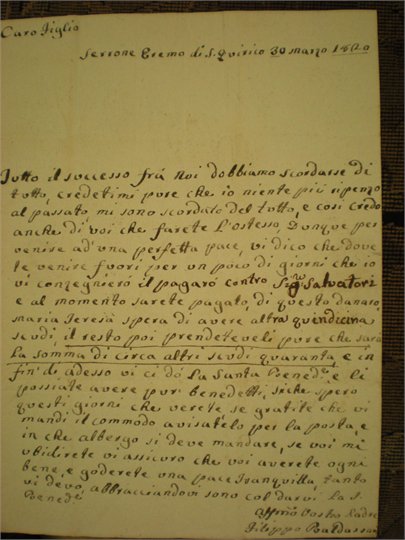 Caro Figlio
Serrone Eremo di S. Quirico 30 marzo 1820
Tutto il successo frà noi dobbiamo scordarse di
tutto, credetimi pure che io niente più ripenzo
al passato, mi sono scordato del tutto, e così credo
anche di voi che farete l'ostesso, Dunque per
venire ad'una perfetta pace, vi dico che dove
te venire fuori per un poco di giorni che io
vi consegnierò il pagarò contro Sig.ro Salvatori
e al momento sarete pagato, di questo danaro,
maria Teresia spera di avere altra quindicina
scudi, il resto poi prendeteveli pure che sarà
la somma di circa altri scudi quaranta, e in
fin' di adesso vi ci dò la Santa Bened.e e li
possiate avere pur' benedetti, siche spero
questi giorni che verete se gratite che vi
mandi il commodo avisatelo per la posta, e
in che albergo si deve mandare, se voi mi
ubidirete vi assicuro che voi averete ogni
bene, e goderete una pace tranquilla, tanto
vi devo, abbracciandovi sono col darvi la S.
Bened.e
Affmo Vostro Padre
Filippo Baldassa